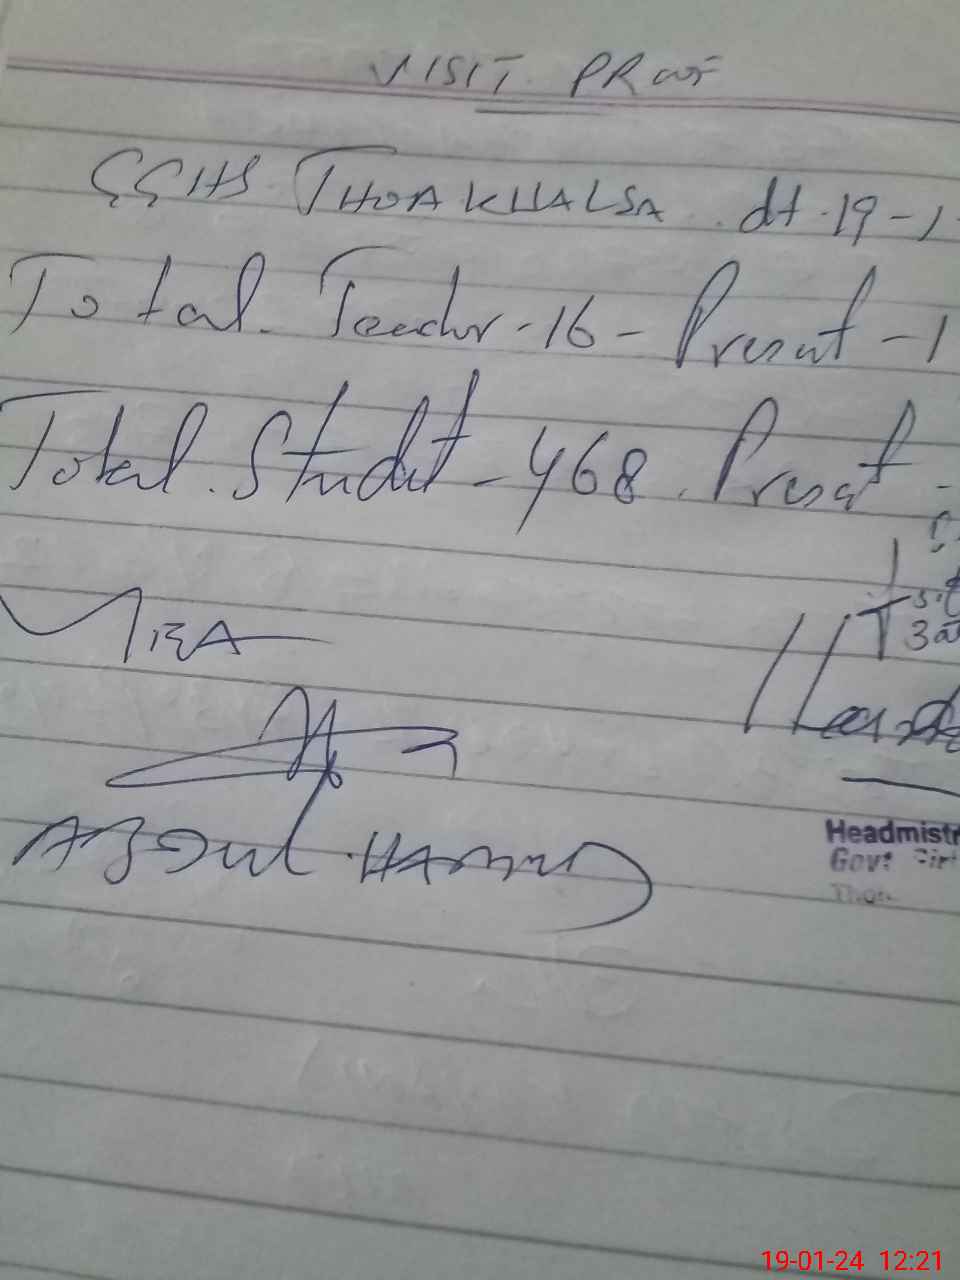 VISIT PROOF
GGHS THOA KHALSA dt. 19-1
Total Teacher - 16 - Present - 1
Total Student - 468. Present -
MEA
ABDUL HAMEED
Headmistr
Govt Girl
Thoa
19-01-24 12:21